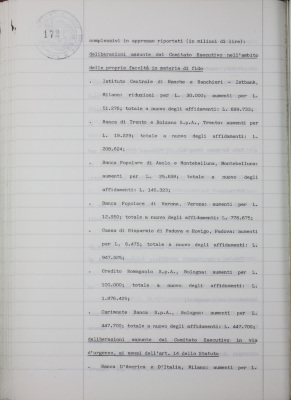 172
complessivi in appresso riportati (in milioni di lire):
deliberazioni assunte dal Comitato Esecutivo nell'ambito
delle proprie facoltà in materia di fido
. Istituto Centrale di Banche e Banchieri -
Milano: riduzioni per L. 30.000; aumenti per L.
totale a nuovo degli affidamenti: L.
. Banca di Trento e Bolzano S.p.A., Trento: aumenti per
L. totale a nuovo degli affidamenti: L.
. Banca Popolare di Asolo e Montebelluna, Montebelluna:
aumenti per L. totale a nuovo degli
affidamenti: L.
. Banca Popolare di Verona, Verona: aumenti per L.
totale a nuovo degli affidamenti: L.
. Cassa di Risparmio di Padova e Rovigo, Padova: aumenti
per L. totale a nuovo degli affidamenti: L.
. Credito Romagnolo S.p.A., Bologna: aumenti per L.
totale a nuovo degli affidamenti: L.
. Carimonte Banca S.p.A., Bologna: aumenti per L.
447.700; totale a nuovo degli affidamenti: L. 447.700;
deliberazioni assunte dal Comitato Esecutivo in via
d'urgenza, ai sensi dell'art. dello Statuto
. Banca D'America e D'Italia, Milano: aumenti per L.